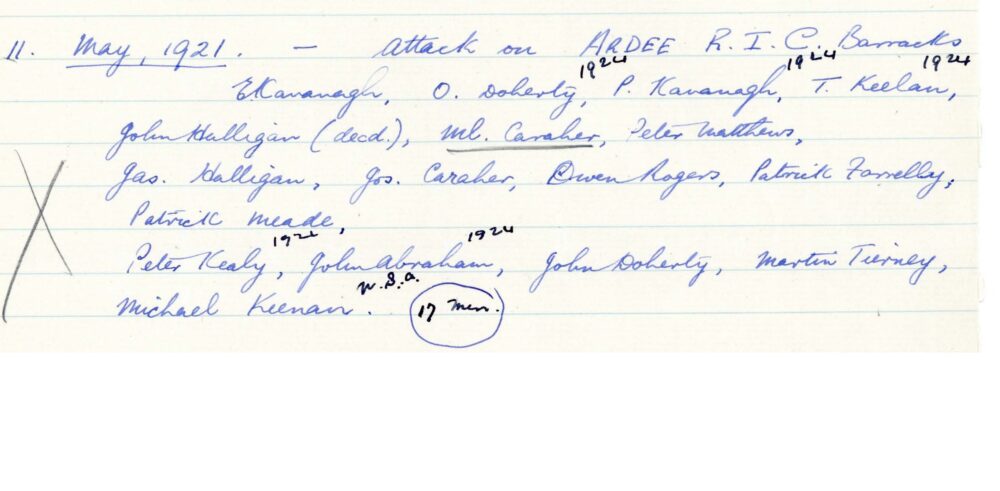 11. May, 1921. - Attack on ARDEE R.I.C. Barracks
EKavanagh, O. Doherty, 1924 P. Kavanagh, 1924 T. Keelan, 1924
John Halligan (decd.), Ml. Caraher, Peter Matthews,
Jas. Halligan, Jos. Caraher, Owen Rogers, Patrick Farrelly,
Patrick Meade,
Peter Kealy, 1924 John Abraham, 1924 John Doherty, Martin Tierney,
Michael Keenan. 17 Men.